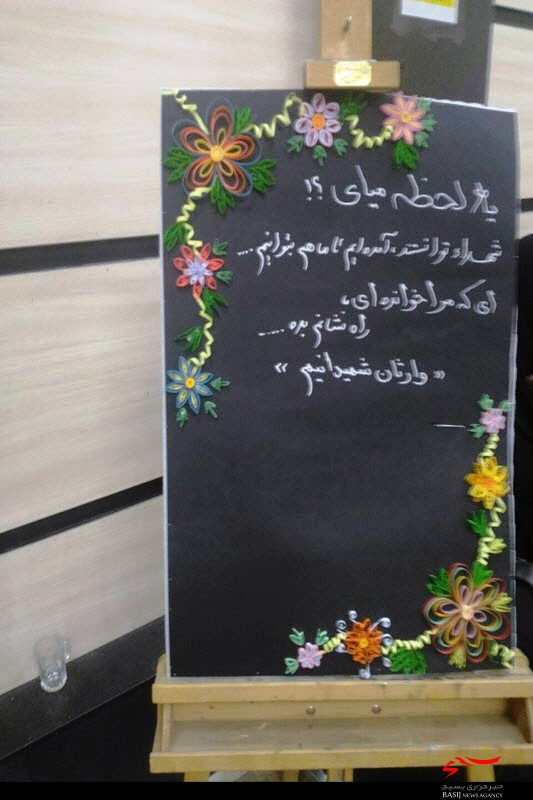 یک لحظه میای ؟!
شهدا توانستند ، آمده ایم تا ما هم بتوانیم ....
ای که مرا خوانده ای ،
راه نشانم بده .....
« وارثان شهیدانیم »
خبرگزاری بسیج
BASIJ NEWS AGANCY